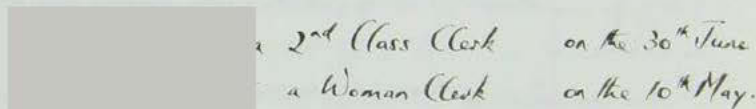 a 2nd Class Clerk on the 30th June
a Woman Clerk on the 10th May.